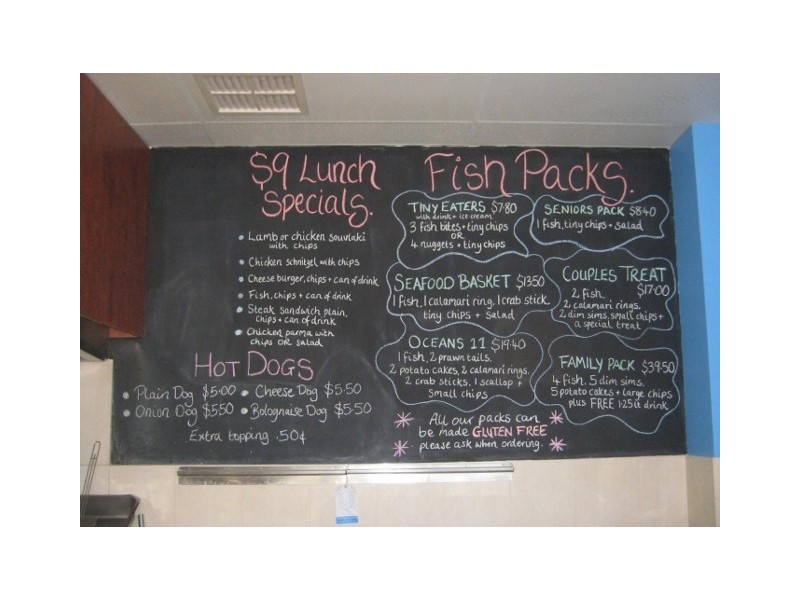 $9 Lunch
Specials.
Lamb or chicken souvlaki
with chips
Chicken schnitzel with chips
Cheese burger, chips + can of drink
Fish, chips + can of drink
Steak sandwich plain,
chips + can of drink
Chicken parma with
chips OR salad
HOT DOGS
Plain Dog $5.00 • Cheese Dog $5.50
Onion Dog $5.50 • Bolognaise Dog $5.50
Extra topping .50¢
Fish Packs.
TINY EATERS $7.80
with drink + ice cream
3 fish bites + tiny chips
OR
4 nuggets + tiny chips
SENIORS PACK $8.40
1 fish, tiny chips + salad
SEAFOOD BASKET $13.50
1 fish, 1 calamari ring, 1 crab stick
tiny chips + salad
COUPLES TREAT
$17.00
2 fish
2 calamari rings,
2 dim sims, small chips +
a special treat
OCEANS 11 $19.40
1 fish, 2 prawn tails,
2 potato cakes, 2 calamari rings,
2 crab sticks, 1 scallop +
small chips
FAMILY PACK $39.50
4 fish, 5 dim sims,
5 potato cakes + large chips
plus FREE 1.25lt drink
All our packs can
be made GLUTEN FREE
please ask when ordering.